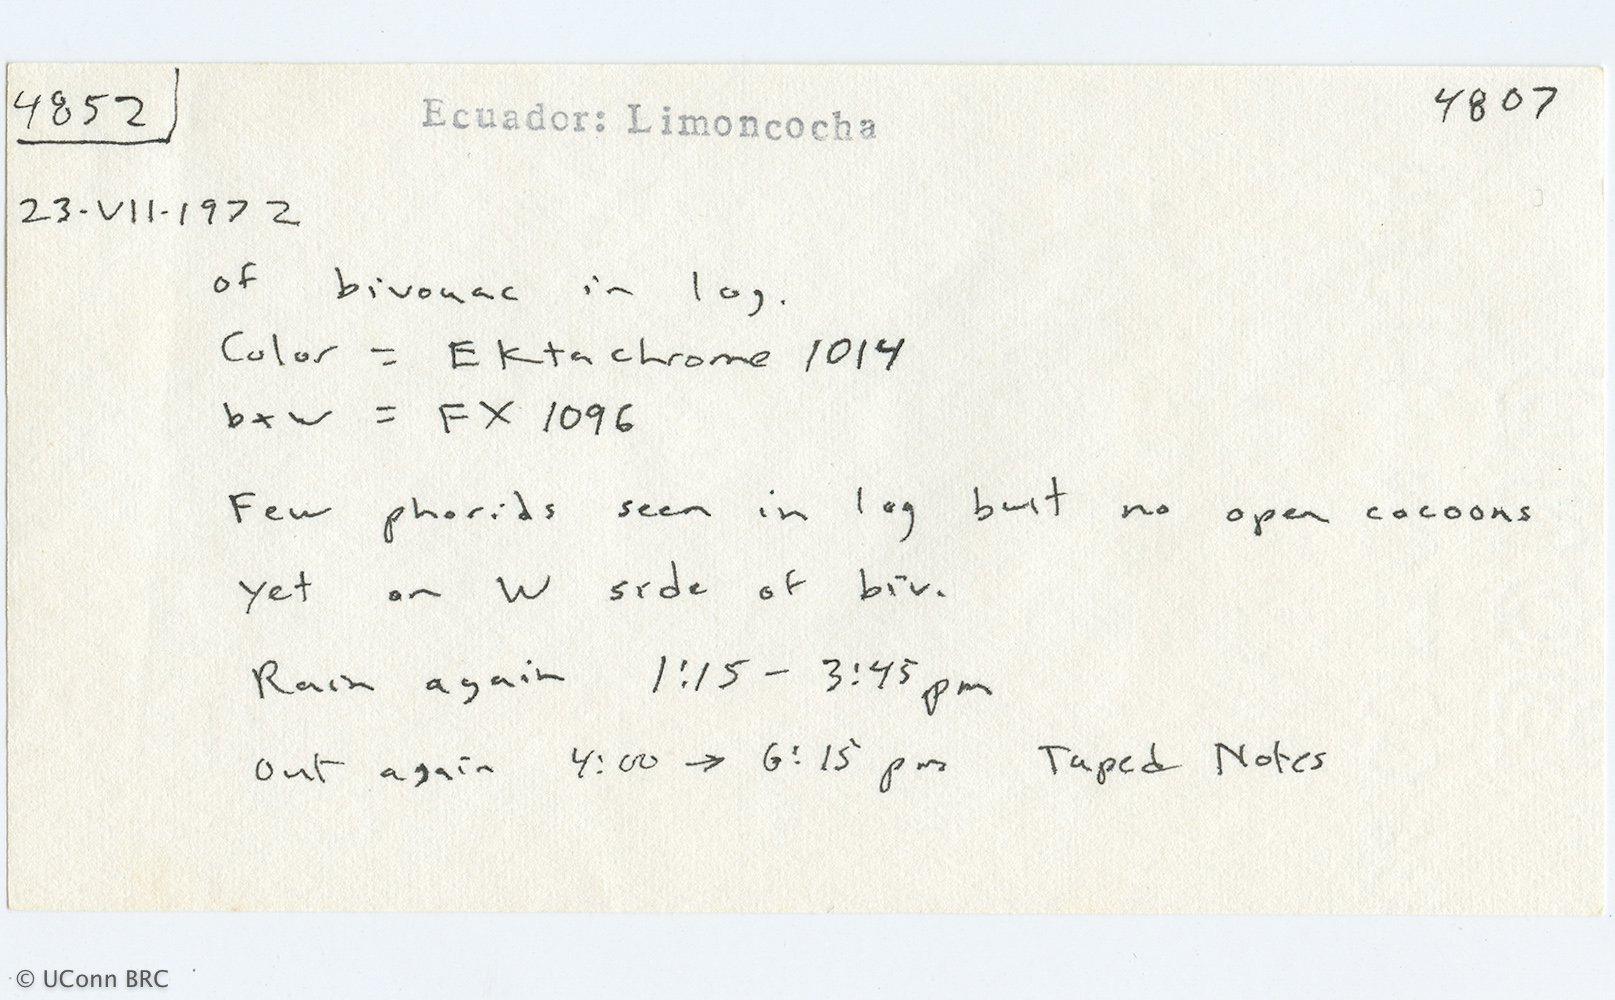 4852
Ecuador: Limoncocha
4807
23-VII-1972
of bivouac in log.
Color = Ektachrome 1014
b+w = FX 1096
Few phorids seen in log but no open cocoons
yet on W side of biv.
Rain again 1:15 - 3:45 pm
Out again 4:00 → 6:15 pm Taped Notes
© UConn BRC